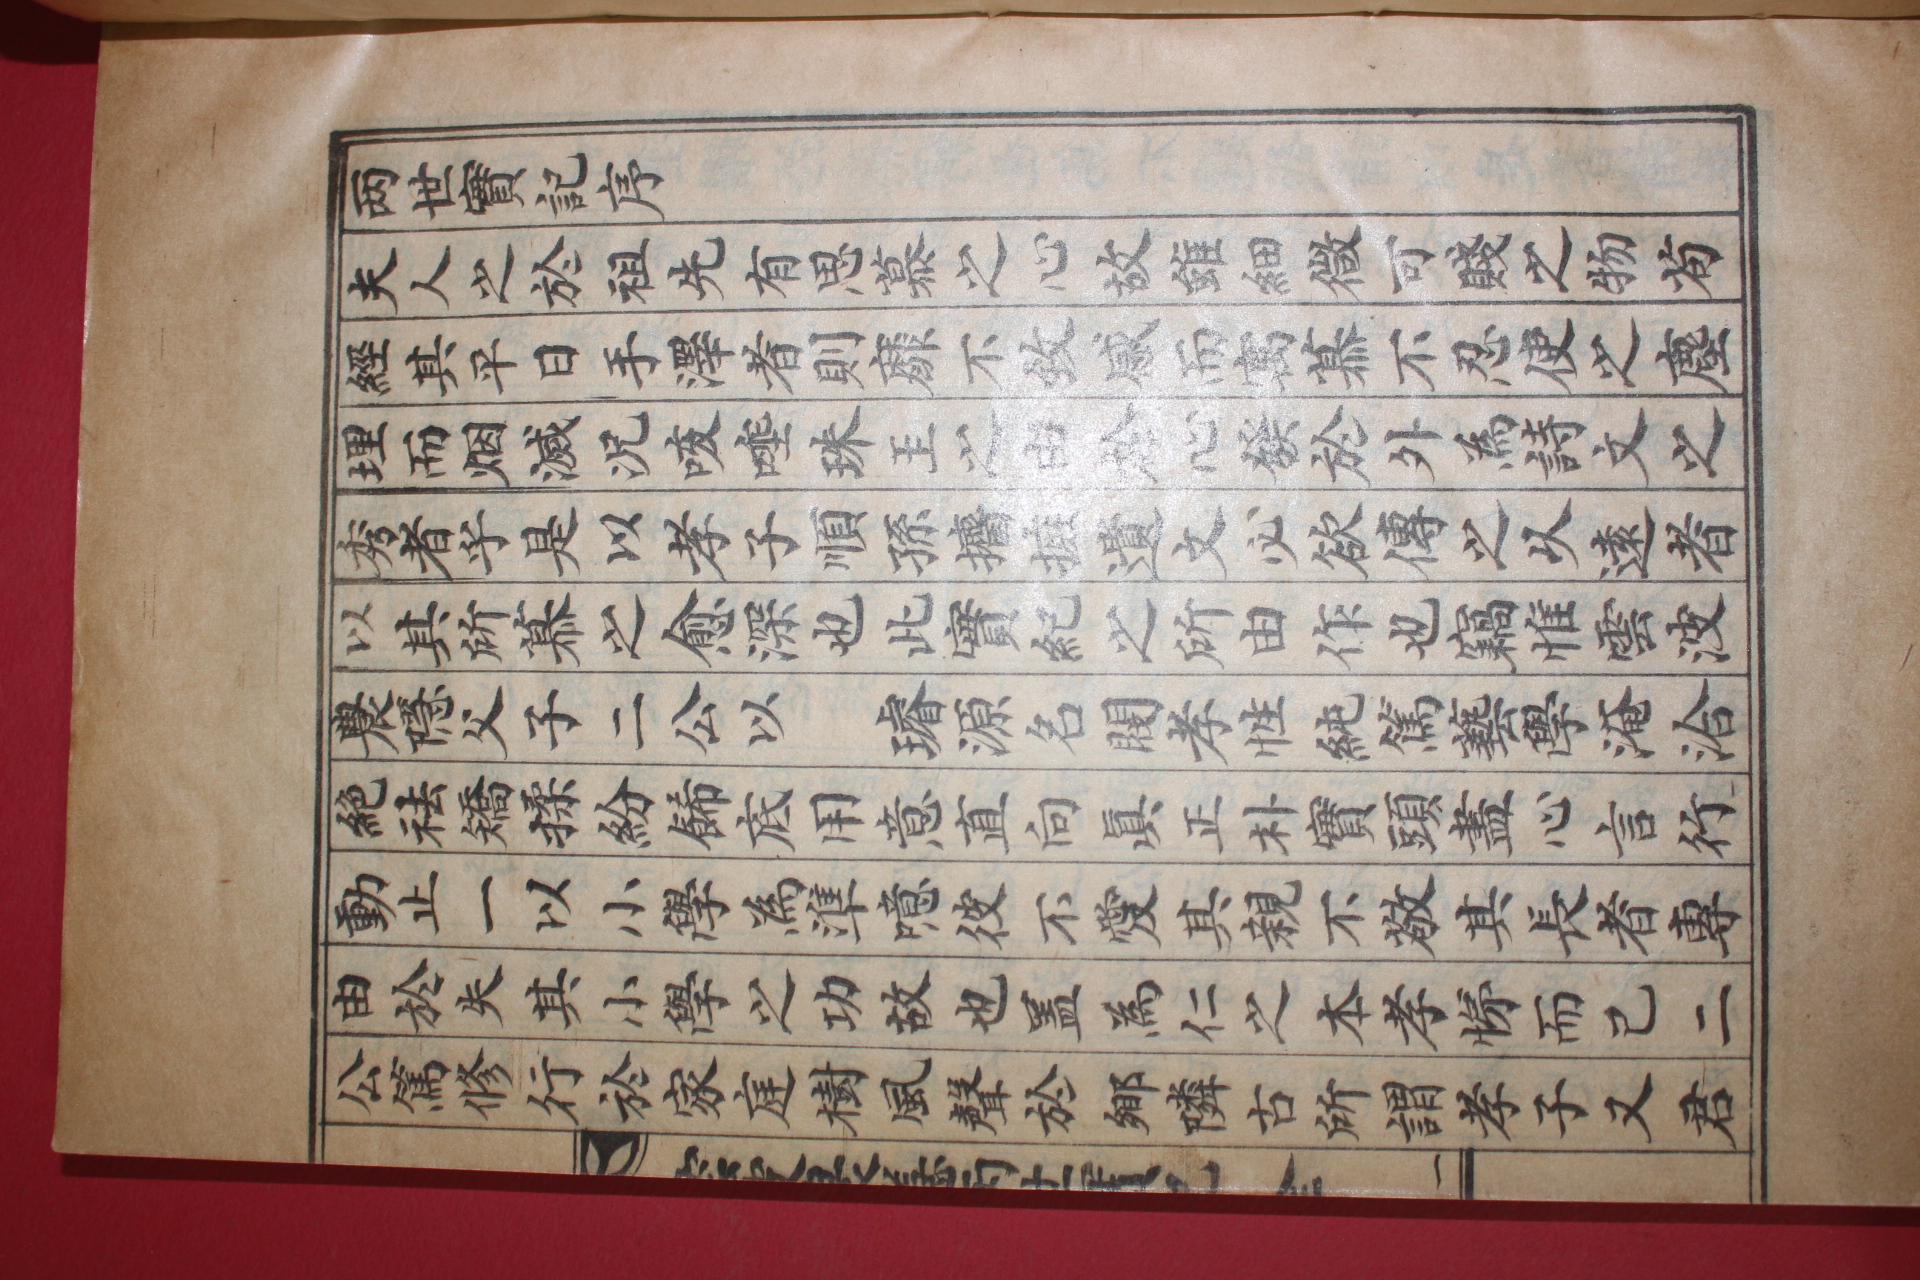 两世實記序
夫人之於祖先有思慕之心故雖細微可賤之物苟
經其平日手澤者則靡不致感而寓慕不忍使之塵
埋而烟滅況咳唾珠玉之由於心發於外為詩文之
秀者乎是以孝子順孫擂摭遺文必欲傳之以遠者
以其所慕之愈深也此實紀之所由作也竊惟雲波
農隱父子二公以　璿源名閥孝性純篤藝學淹洽
絕袪矯揉紛餙底用意直向眞正朴實頭盡心言行
動止一以小學為準噫彼不愛其親不敬其長者專
由於失其小學之功故也盖為仁之本孝悌而已二
公篤修行於家庭樹風聲於鄉隣古所謂孝子又君
雲波農隱两世實記 全 一